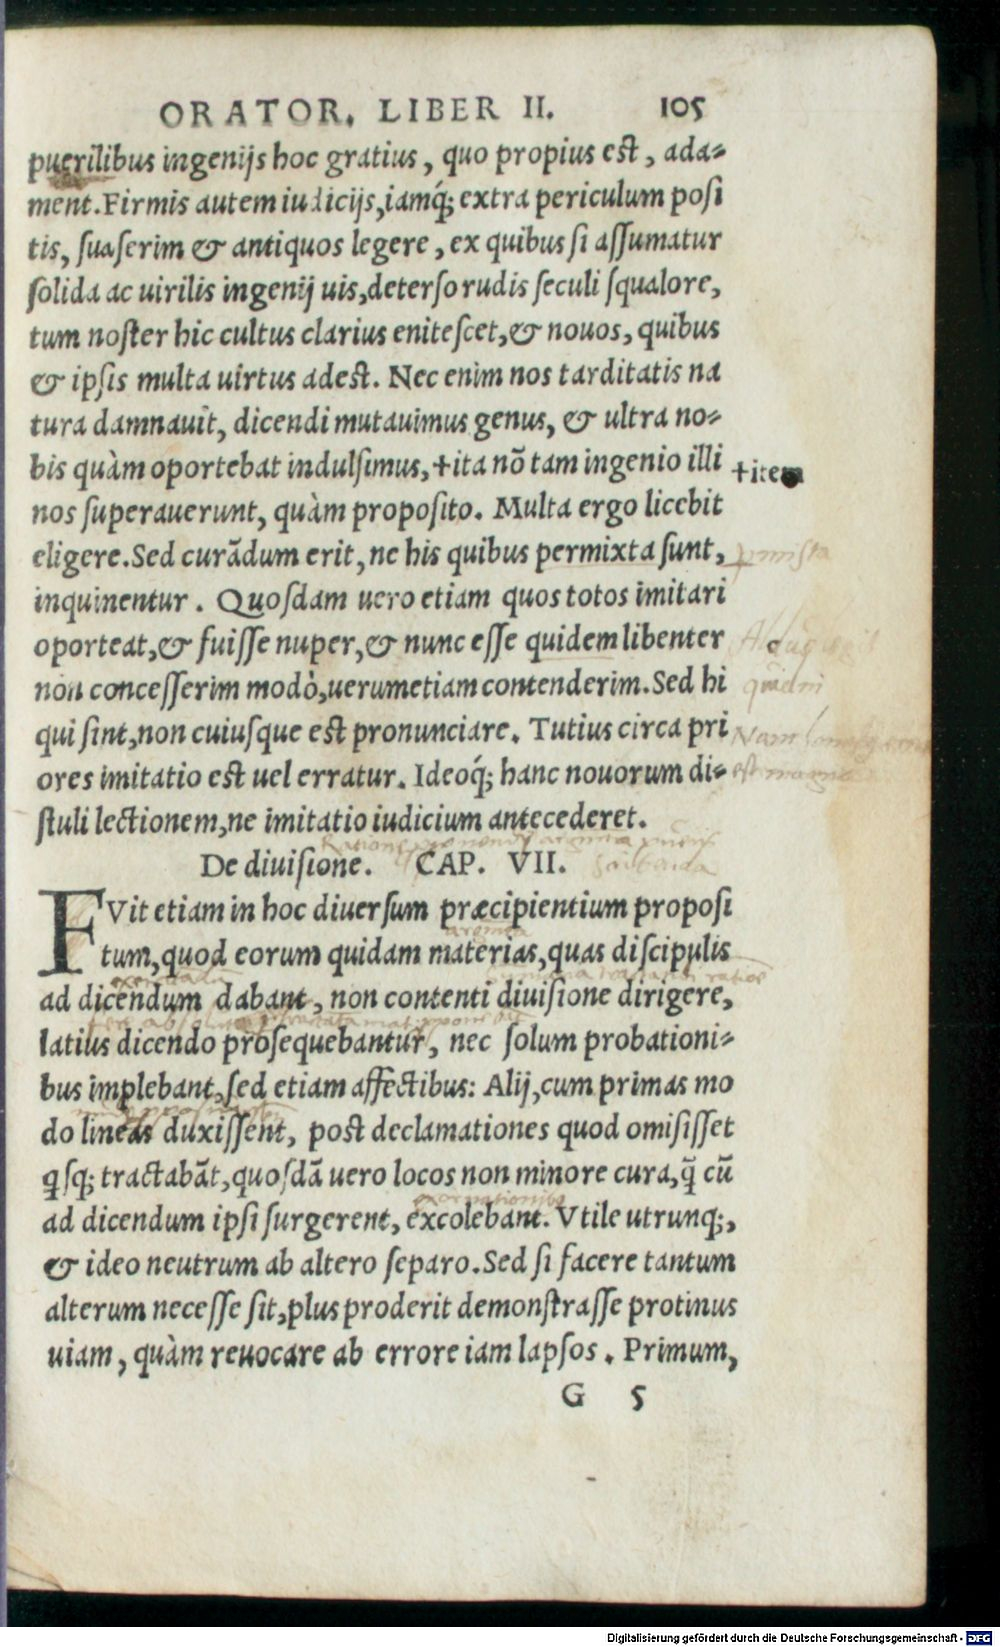 ORATOR. LIBER II. 105
puerilibus ingenijs hoc gratius, quo propius est, ada-
ment. Firmis autem iudicijs, iamq́; extra periculum posi
tis, suaserim & antiquos legere, ex quibus si assumatur
solida ac uirilis ingenij uis, deterso rudis seculi squalore,
tum noster hic cultus clarius enitescet, & nouos, quibus
& ipsis multa uirtus adest. Nec enim nos tarditatis na
tura damnauit, dicendi mutauimus genus, & ultra no-
bis quàm oportebat indulsimus, +ita nō tam ingenio illi
+item
nos superauerunt, quàm proposito. Multa ergo licebit
eligere. Sed curādum erit, ne his quibus permixta sunt,
pmista
inquinentur. Quosdam uero etiam quos totos imitari
oporteat, & fuisse nuper, & nunc esse quidem libenter
non concesserim modò, uerumetiam contenderim. Sed hi
quidni
qui sint, non cuiusque est pronunciare. Tutius circa pri
Nam
ores imitatio est uel erratur. Ideoq́; hanc nouorum di-
stuli lectionem, ne imitatio iudicium antecederet.
De diuisione. CAP. VII.
FVit etiam in hoc diuersum præcipientium proposi
tum, quod eorum quidam materias, quas discipulis
ad dicendum dabant, non contenti diuisione dirigere,
latius dicendo prosequebantur, nec solum probationi-
bus implebant, sed etiam affectibus: Alij, cum primas mo
do lineas duxissent, post declamationes quod omisisset
q̇sq; tractabāt, quosdā uero locos non minore cura, q̄ cū
ad dicendum ipsi surgerent, excolebant. Vtile utrunq;,
& ideo neutrum ab altero separo. Sed si facere tantum
alterum necesse sit, plus proderit demonstrasse protinus
uiam, quàm reuocare ab errore iam lapsos. Primum,
G 5
Digitalisierung gefördert durch die Deutsche Forschungsgemeinschaft - DFG